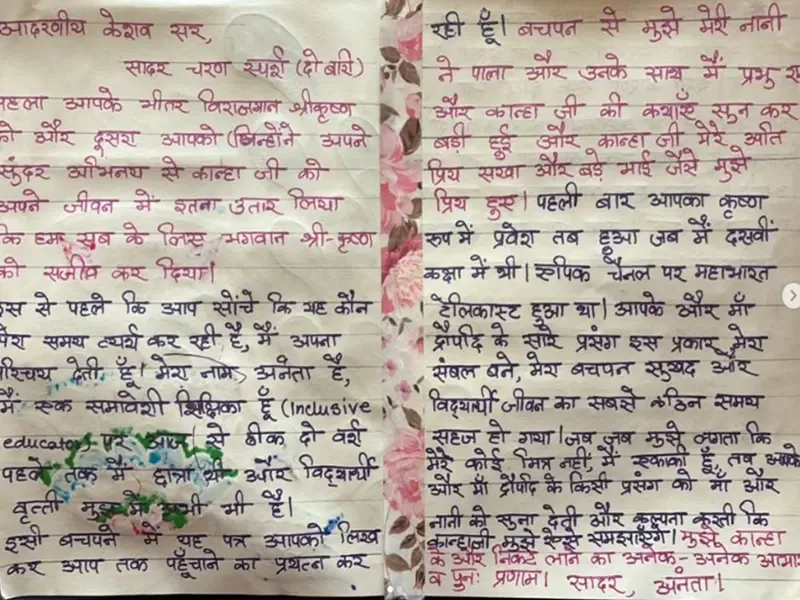 आदरणीय केशव सर,
सादर चरण स्पर्श (दो बारी)
पहला आपके भीतर विराजमान श्रीकृष्ण
को और दूसरा आपको (जिन्होंने अपने
सुंदर अभिनय से कान्हा जी को
अपने जीवन में इतना उतार लिया
कि हम सब के लिए भगवान श्री-कृष्ण
को सजीव कर दिया।
इस से पहले कि आप सोंचे कि यह कौन
मेरा समय व्यर्थ कर रही है, मैं अपना
परिचय देती हूँ। मेरा नाम अनंता है,
मैं एक समावेशी शिक्षिका हूँ (Inclusive
educator) पर आज से ठीक दो वर्ष
पहले तक मैं छात्रा थी और विद्यार्थी
वृत्ती मुझ में अभी भी है।
इसी बचपने में यह पत्र आपको लिख
कर आप तक पहुँचाने का प्रयत्न कर
रही हूँ। बचपन से मुझे मेरी नानी
ने पाला और उनके साथ मैं प्रभु
और कान्हा जी की कथाएँ सुन कर
बड़ी हुई और कान्हा जी मेरे अति
प्रिय सखा और बड़े भाई जैसे मुझे
प्रिय हुए। पहली बार आपका कृष्ण
रूप में प्रवेश तब हुआ जब मैं दसवीं
कक्षा में थी। एपिक चैनल पर महाभारत
टेलिकास्ट हुआ था। आपके और माँ
द्रौपदि के सारे प्रसंग इस प्रकार मेरा
संबल बने, मेरा बचपन सुखद और
विद्यार्थी जीवन का सबसे कठिन समय
सहज हो गया। जब जब मुझे लगता कि
मेरे कोई मित्र नहीं, मैं एकाकी हूँ, तब आपके
और माँ द्रौपदि के किसी प्रसंग को माँ और
नानी को सुना देती और कल्पना करती कि
कान्हाजी मुझे ऐसे समझाएँगे। मुझे कान्हा
के और निकट लाने का अनेक-अनेक आभार
व पुनः प्रणाम। सादर, अनंता।